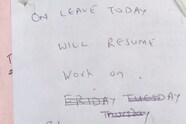 ON LEAVE TODAY
WILL RESUME
Work on.
FRIDAY TUESDAY
Thursday